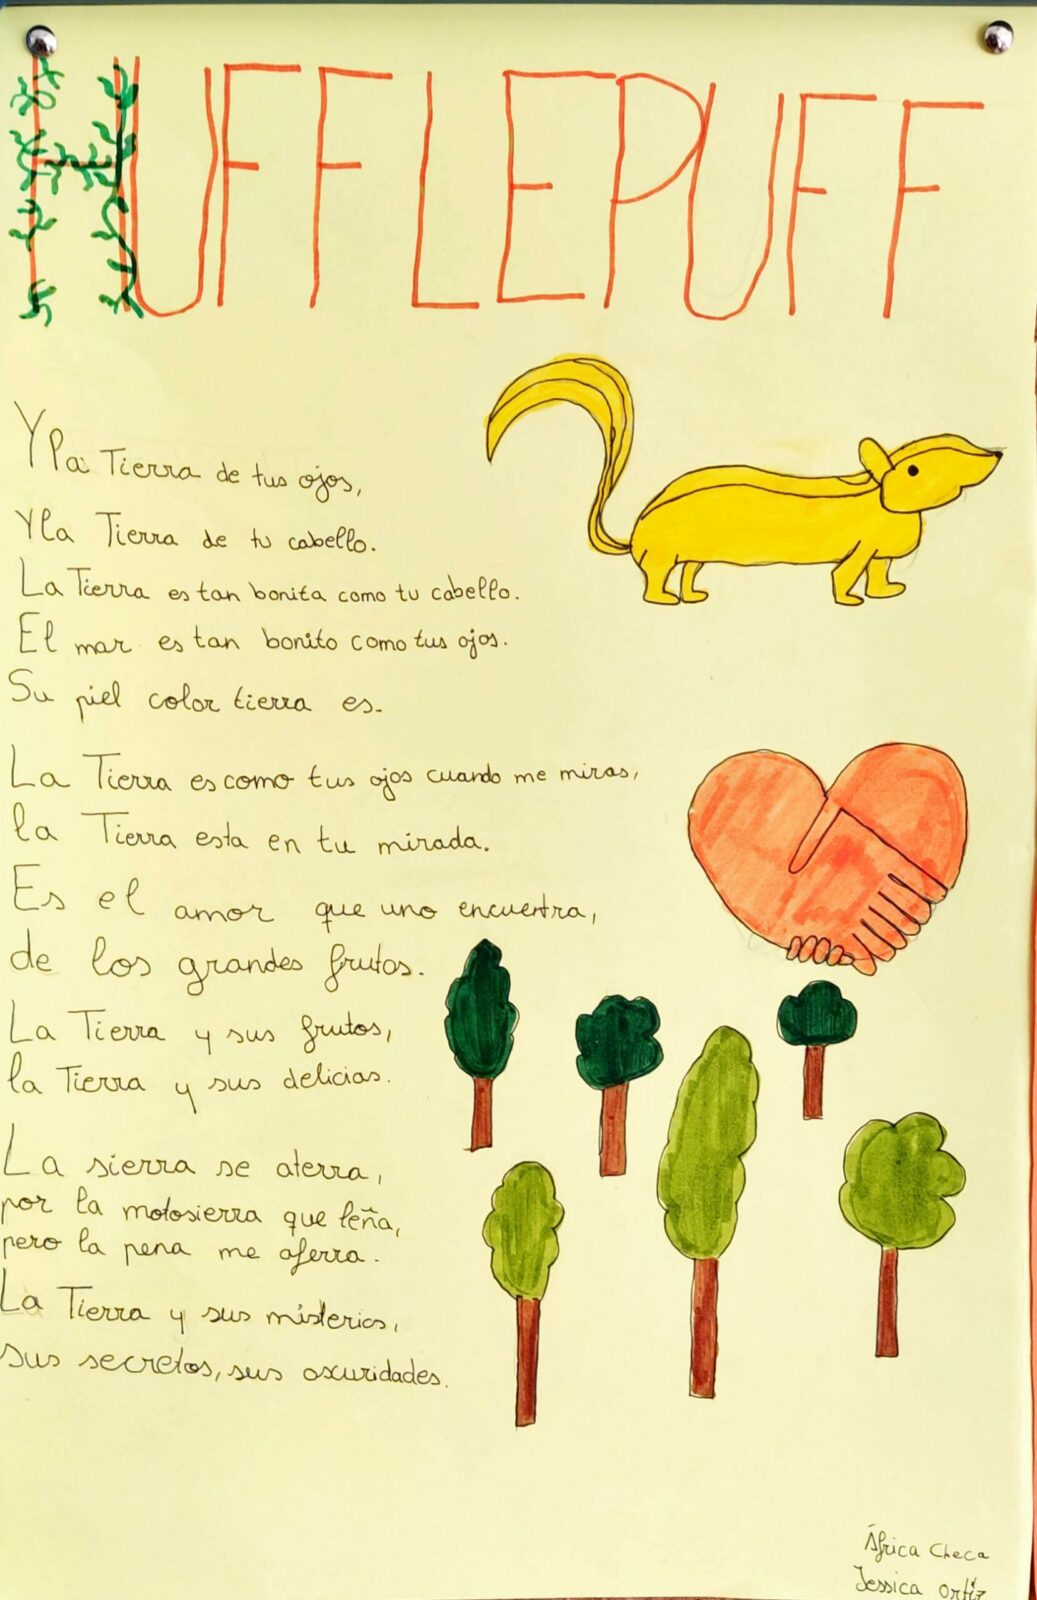 HUFFLEPUFF
Y la Tierra de tus ojos,
Y la Tierra de tu cabello.
La Tierra es tan bonita como tu cabello.
El mar es tan bonito como tus ojos.
Su piel color tierra es.
La Tierra es como tus ojos cuando me miras,
la Tierra esta en tu mirada.
Es el amor que uno encuentra,
de los grandes frutos.
La Tierra y sus frutos,
la Tierra y sus delicias.
La sierra se aterra,
por la motosierra que leña,
pero la pena me aferra.
La Tierra y sus misterios,
sus secretos, sus oscuridades.
África Checa
Jessica Ortiz